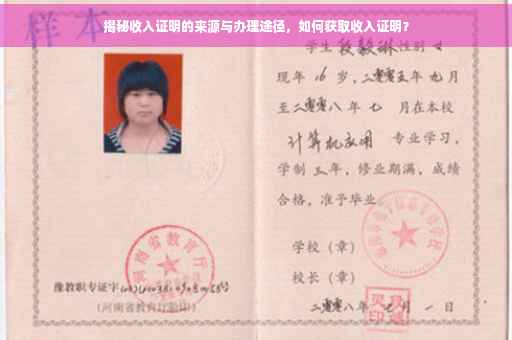 揭秘收入证明的来源与办理途径，如何获取收入证明？
样本
学生 段毅琳 性别 女
现年 16 岁，二零零五年 九月
至二零零八年 七 月在本校
计算机应用 专业学习，
学制 三 年，修业期满，成绩
合格，准予毕业
学校（章）
校长（章）
二零零八年 七 月 一 日
河南省教育厅
豫教职专证字
（河南省教育厅验印）